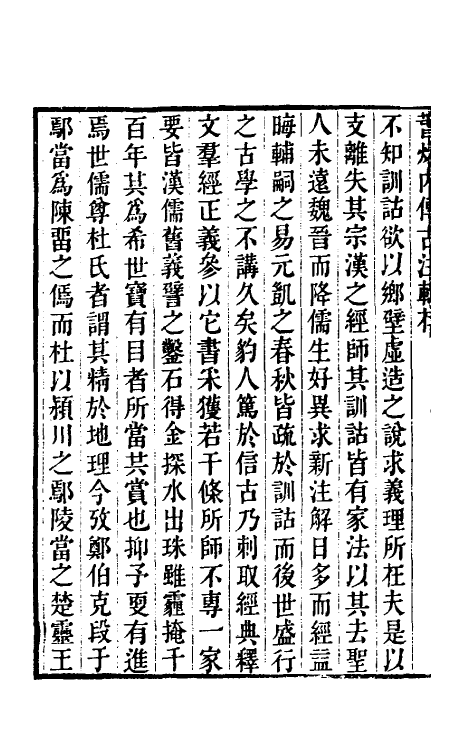 內傳古注輯存
不知訓詁欲以鄉壁虛造之說求義理所在夫是以
支離失其宗漢之經師其訓詁皆有家法以其去聖
人未遠魏晉而降儒生好異求新注解日多而經益
晦輔嗣之易元凱之春秋皆疏於訓詁而後世盛行
之古學之不講久矣豹人篤於信古乃刺取經典釋
文羣經正義參以它書采獲若干條所師不專一家
要皆漢儒舊義譬之鑿石得金探水出珠雖霾掩千
百年其爲希世寶有目者所當共賞也抑予更有進
焉世儒尊杜氏者謂其精於地理今攷鄭伯克段于
鄢當爲陳畱之傿而杜以潁川之鄢陵當之楚靈王